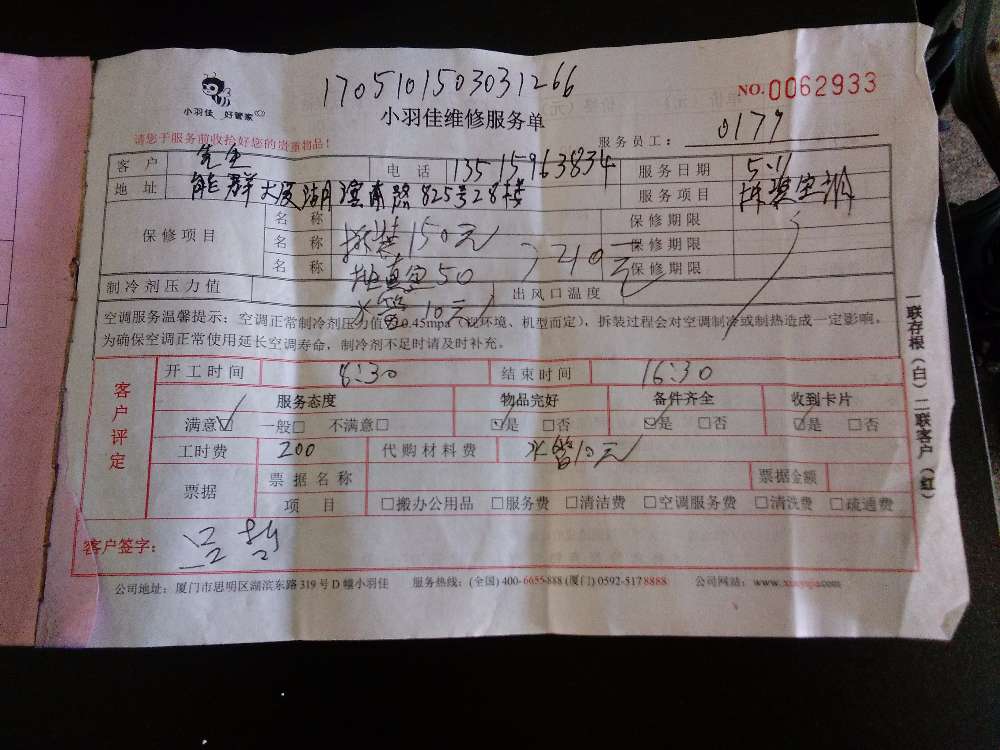 1705101503031266
NO.0062933
小羽佳 好管家
小羽佳维修服务单
请您于服务前收拾好您的贵重物品!
服务员工: 0177
客户 先生 电话 13515963834 服务日期 5.11
地址 能群大厦湖滨南路825号28楼 服务项目
保修项目 名称 保修期限
名称 拆装150元 210元 保修期限
名称 抽真空50 保修期限
制冷剂压力值 水管10元 出风口温度
空调服务温馨提示:空调正常制冷剂压力值 0.45mpa(视环境、机型而定),拆装过程会对空调制冷或制热造成一定影响,
为确保空调正常使用延长空调寿命,制冷剂不足时请及时补充。
客户评定
开工时间 8:30 结束时间 16:30
服务态度 物品完好 备件齐全 收到卡片
满意☑ 一般□ 不满意□ ☑是 □否 ☑是 □否 ☑是 □否
工时费 200 代购材料费 水管10元
票据 票据名称 票据金额
项目 □搬办公用品 □服务费 □清洁费 □空调服务费 □清洗费 □疏通费
客户签字:
公司地址:厦门市思明区湖滨东路319号D幢小羽佳 服务热线:(全国)400-6655-888(厦门)0592-5178888 公司网站:www.
一联存根(白)二联客户(红)